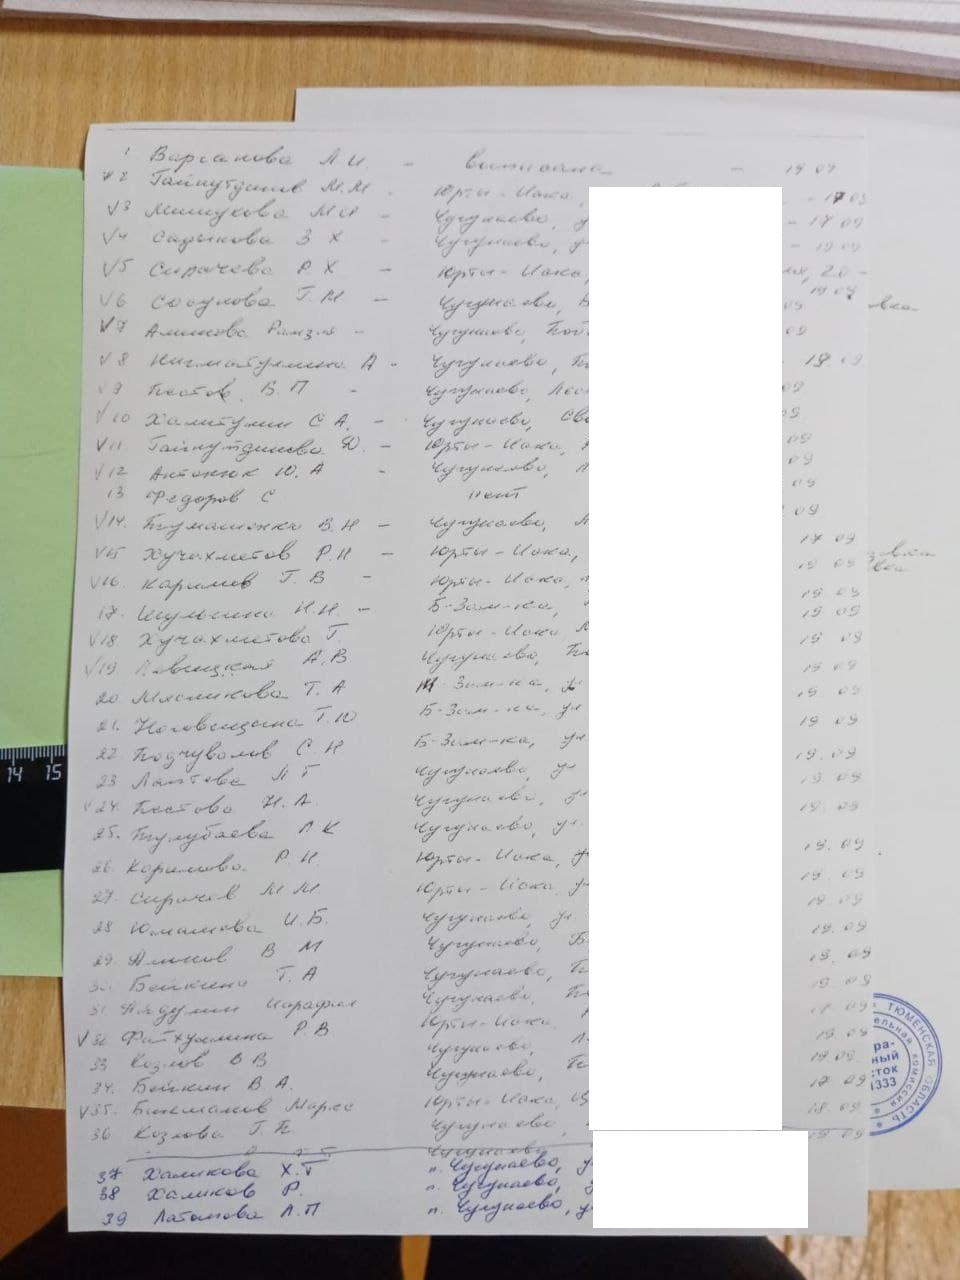 1 Варганова Л.И. - выписана - 19 09
2 Гайнутдинов М.М - Юрты-Иска, - 17 09
√3 Мишукова М И - Чугунаево, у - 17 09
√4 Садыкова З Х - Чугунаево, у - 19 09
√5 Сирачева Р Х - Юрты-Иска, 20 -
19 09
√6 Сосунова Г. М - Чугунаево, 09
√7 Аминова Рамзия - Чугунаево, 09
√8 Нигматуллина А - Чугунаево, - 19.09
√9 Пестов В. П - Чугунаево, Лес 09
√10 Халитулин С А. - Чугунаево, 09
√11. Гайнутдинова Ф. - Юрты-Иска, 09
√12 Антонюк Ю. А - Чугунаево, 09
13 Федоров С нет 09
√14. В. Н - Чугунаево, 17 09
√15 Хучахметов Р. Н - Юрты-Иска, 19 09
√16. Каримов Г. В - Юрты-Иска, 19 09
17. Шульгина Н.Н. - Б-Зам-ка, 19 09
√18. Хучахметова Г. Юрты-Иска 19 09
√19 Левицкая А. В Чугунаево, 19 09
20 Мясникова Т. А -Зам-ка, у 19 09
21. Ноговицына Т. Ю Б-Зам-ка, ул 19 09
22 Подчувалов С. Н Б-Зам-ка, ул 19.09
23 Лаптева Л Г Чугунаево, у 19 09
24. Пестова Н. А. Чугунаево, у 19.09
25. Тулубаева Л К Чугунаево, ул. 19. 09
26 Каримова. Р Н Юрты-Иска, у 19. 09
27. Сирачев М М Юрты-Иска, у 19 09
28 Юмашова И. Б. Чугунаево, у 19. 09
29. Аминов В М Чугунаево, Б 19. 09
30. Бойкина Т. А Чугунаево, 19 09
31. Исрафил Чугунаево, 09
√32 Файзуллина Р. В Юрты-Иска. 19 09
33 Козлов В В Чугунаево, 19 09
34. Бойкин В А. Чугунаево, 17 09
√35. Бикшанов Марс Юрты-Иска, 18 09
36 Козлова Г. П Чугунаево, 19 09
Чугунаево
37 Халикова Х. Г п. Чугунаево, у
38 Халиков Р. п. Чугунаево, у
39 Латыпова Л. П п. Чугунаево, у
ТЮМЕНСКАЯ ОБЛАСТЬ
комиссия
1333
14 15